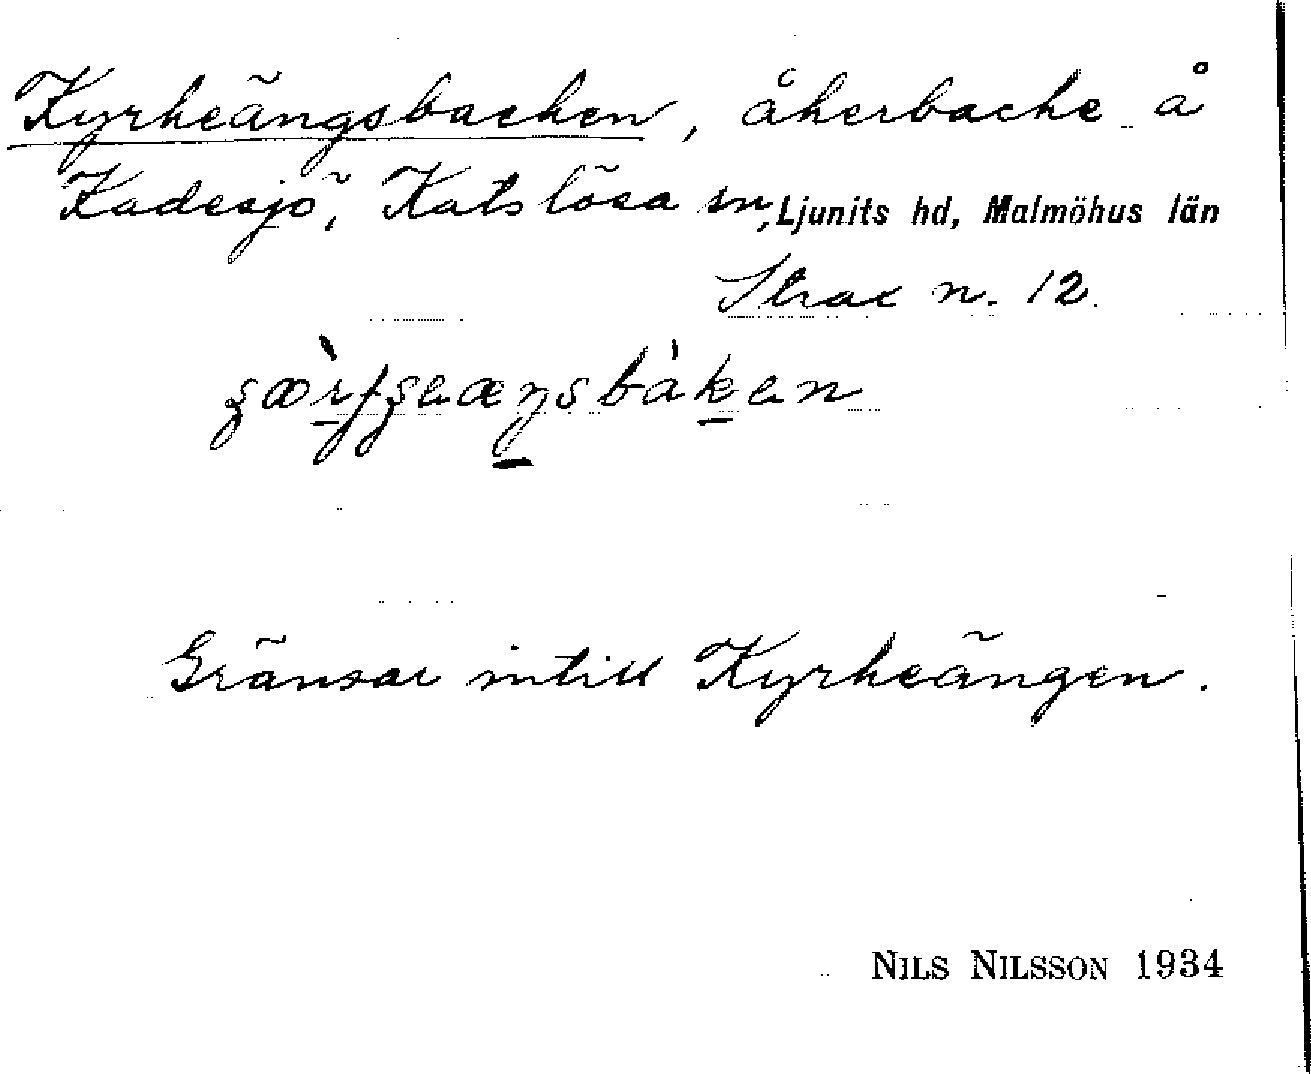 Kyrkeängsbacken, åkerbacke å
Kadesjö, Katslösa sn, Ljunits hd, Malmöhus län
Strax n. 12.
Gränsar intill Kyrkeängen.
NILS NILSSON 1934